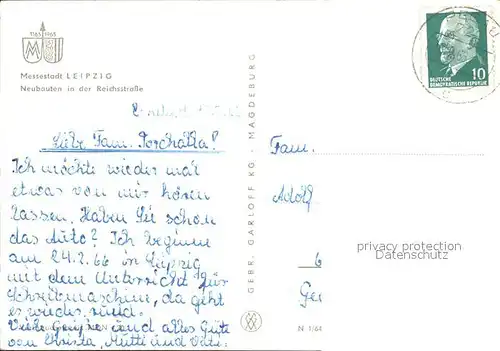 1165 1965
Messestadt LEIPZIG
Neubauten in der Reichsstraße
10
DEUTSCHE
DEMOKRATISCHE REPUBLIK
Liebe Fam.
Ich möchte wieder mal
etwas von mir hören
lassen. Haben Sie schon
das Auto? Ich beginne
am 24.2.66 in Leipzig
mit dem Unterricht für
Schreibmaschine, da geht
es wieder rund.
Viele Grüße und alles Gute
von Christa, Mutti und Vati.
GEBR. GARLOFF KG, MAGDEBURG
Fam.
Adolf
6
Ge
privacy protection
Datenschutz
N 1/64